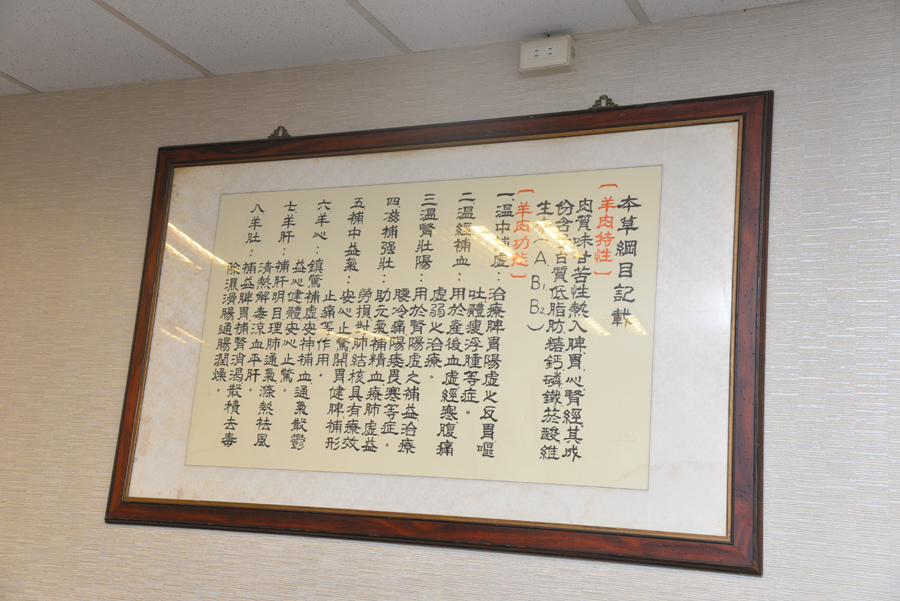 本草綱目記載
〔羊肉特性〕
肉質味甘苦性熱入脾胃心腎經其成
份含蛋白質低脂肪糖鈣磷鐵菸酸維
生素(A、B₁、B₂)
〔羊肉功能〕
一溫中補虛：治療脾胃陽虛之反胃嘔
吐體瘦浮腫等症。
二溫經補血：用於產後血虛經寒腹痛
虛弱之治療。
三溫腎壯陽：用於腎陽虛之補益治療
腰冷痛陽痿畏寒等症。
四滋補强壯：助元氣補精血療肺虛益
勞損對肺結核具有療效
五補中益氣：安心止驚開胃健脾補形
止痛等作用。
六羊心：鎮驚補虛安神補血通氣散鬱
益心健體安心止驚。
七羊肝：補肝明目理肺通氣滌熱祛風
清熱解毒涼血平肝。
八羊肚：補益脾胃補腎消渴散積去毒
除濕滑腸通腸潤燥。